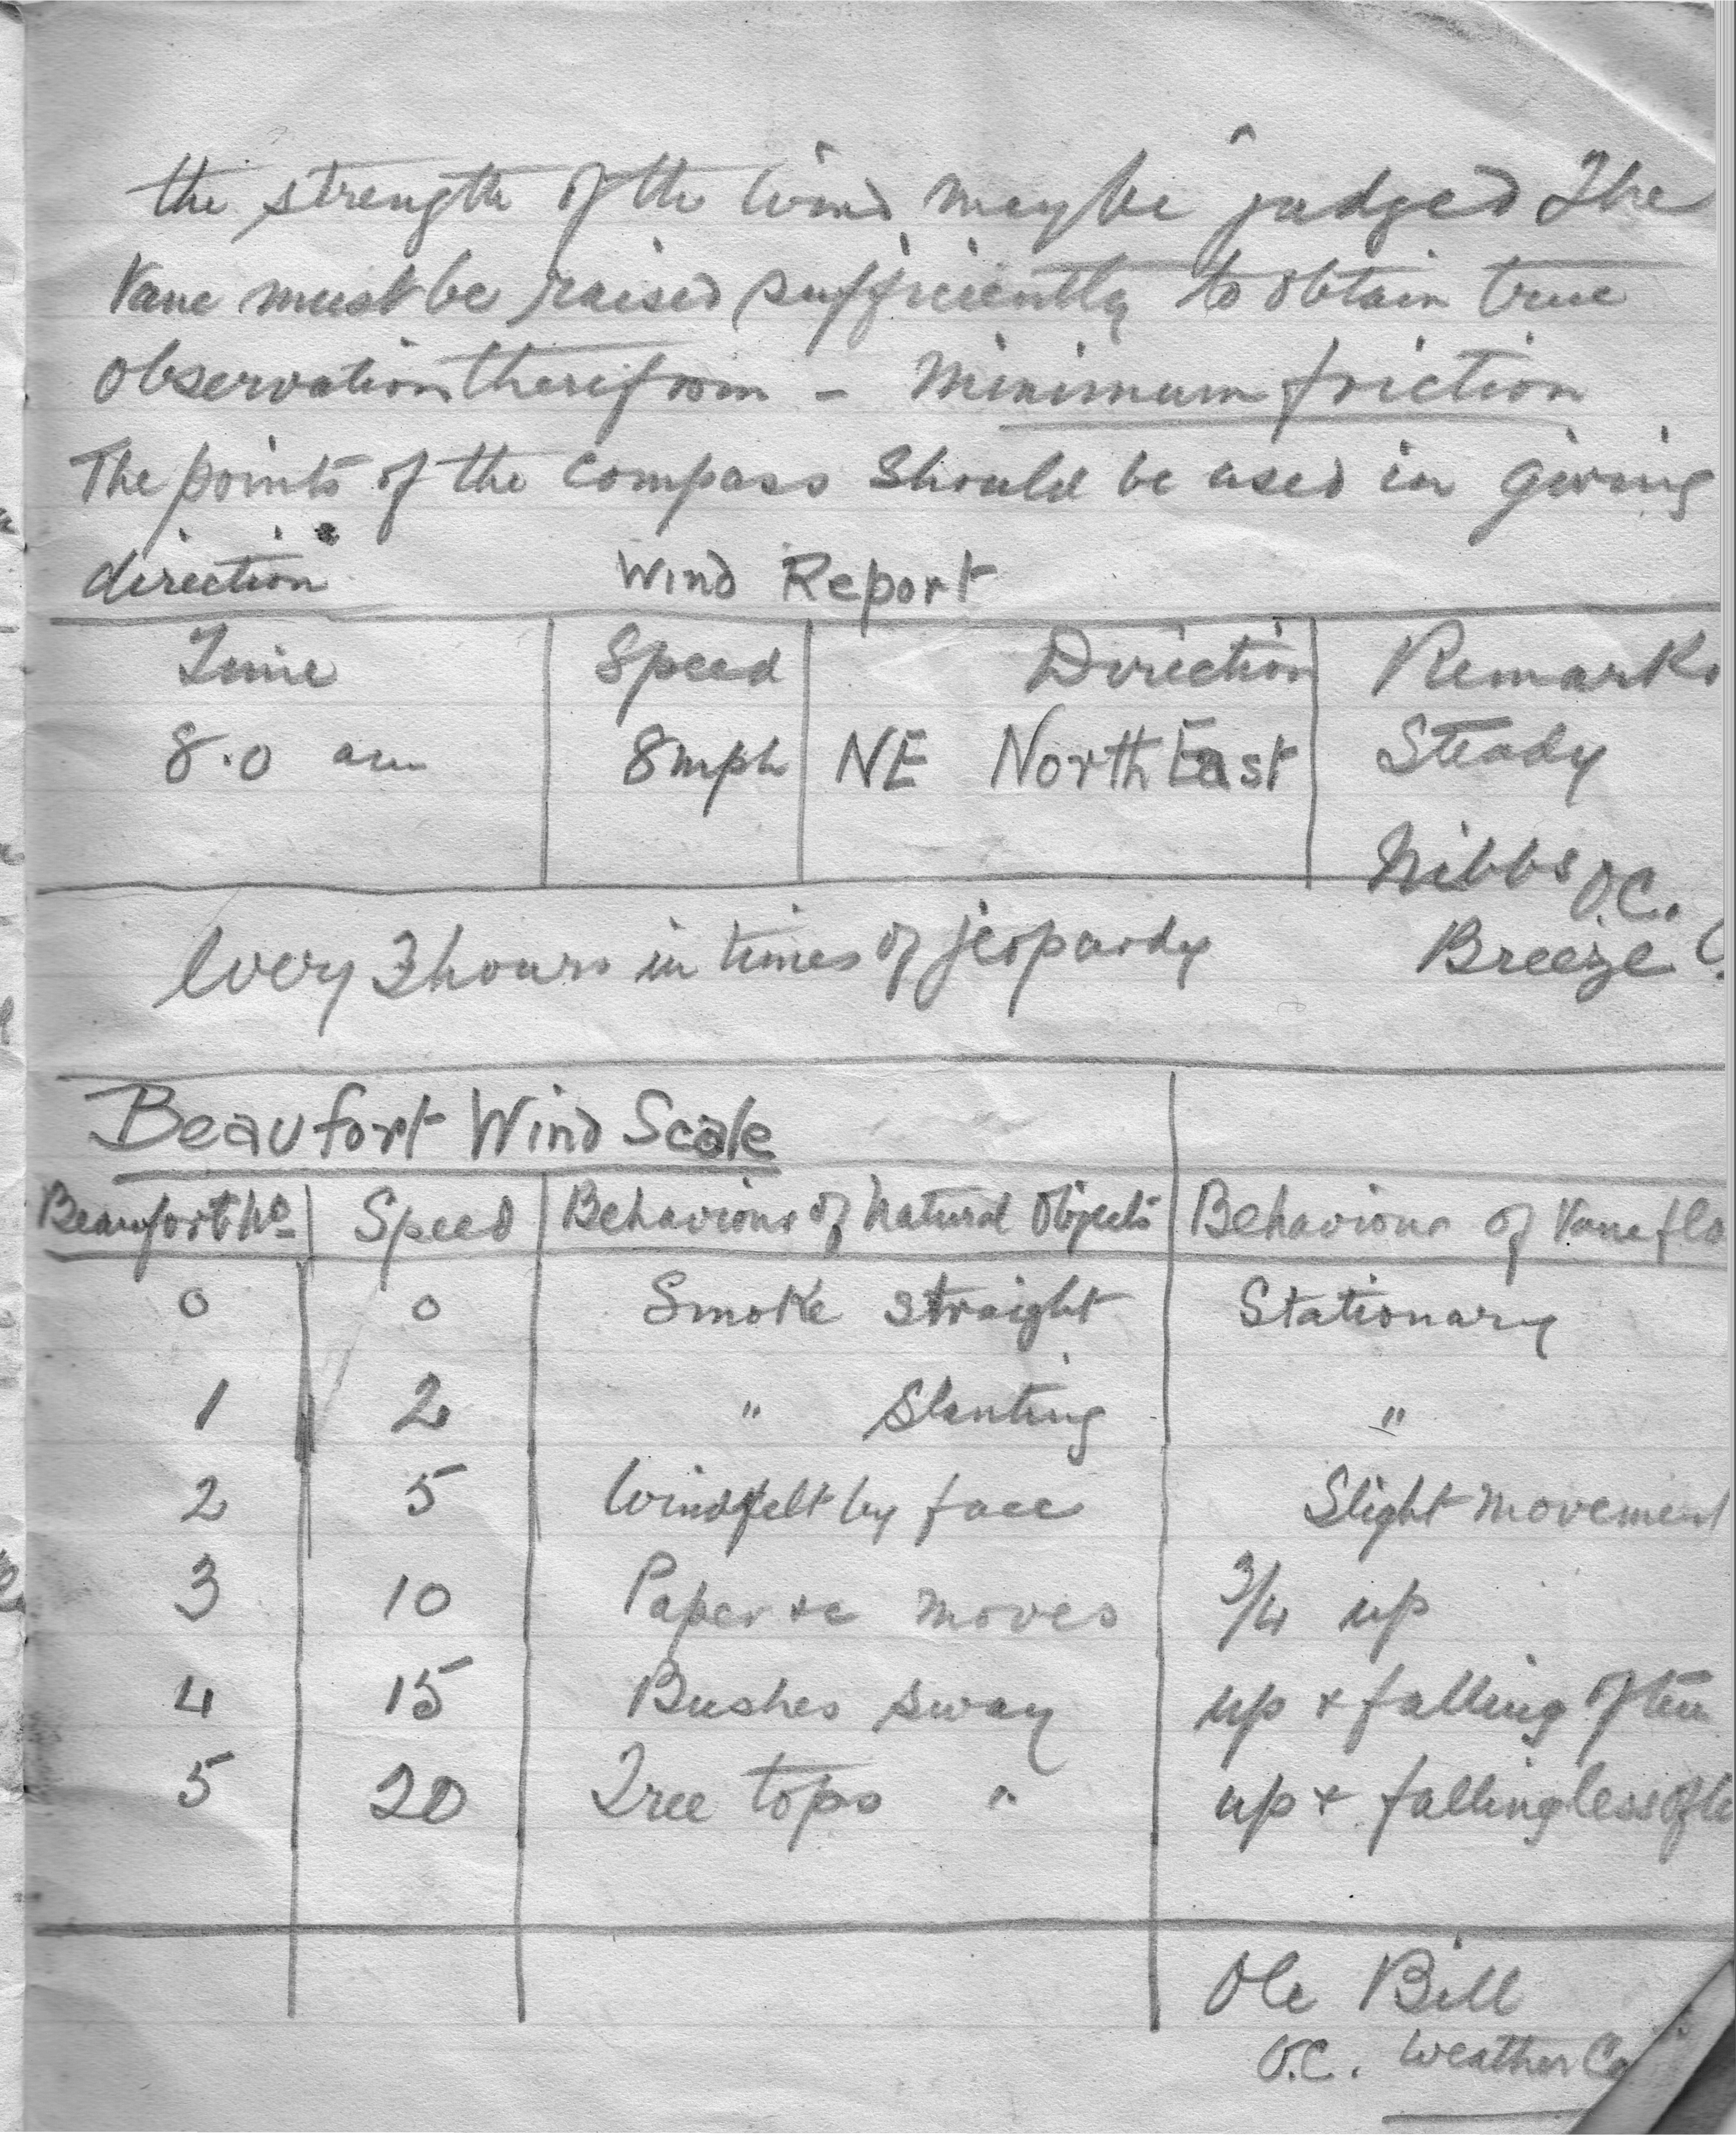 the strength of the wind may be judged The
Vane must be raised sufficiently to obtain true
observation therefrom - Minimum friction
The points of the compass should be used in giving
direction Wind Report
Time Speed Direction Remarks
8.0 am 8mph NE North East Steady
Nibbs O.C.
Every 3 hours in times of jeopardy Breeze
Beaufort Wind Scale
Beaufort No Speed Behaviour of Natural Objects Behaviour of Vane
0 0 Smoke straight Stationary
1 2 " Slanting "
2 5 Wind felt by face Slight movement
3 10 Paper &c moves 3/4 up
4 15 Bushes sway up & falling often
5 20 Tree tops " up & falling less
Ole Bill
O.C. Weather